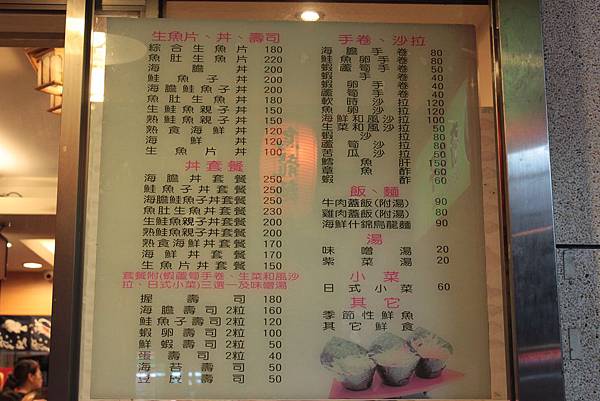 生魚片、丼、壽司
綜合生魚片 180
魚肚生魚片 220
海膽丼 200
鮭魚子丼 200
海膽鮭魚子丼 200
魚肚生魚丼 180
生鮭魚親子丼 150
熟鮭魚親子丼 150
熟食海鮮丼 120
海鮮丼 120
生魚片丼 100
丼套餐
海膽丼套餐 250
鮭魚子丼套餐 250
海膽鮭魚子丼套餐 250
魚肚生魚丼套餐 230
生鮭魚親子丼套餐 200
熟鮭魚親子丼套餐 200
熟食海鮮丼套餐 170
海鮮丼套餐 170
生魚片丼套餐 150
套餐附(蝦蘆筍手卷、生菜和風沙
拉、日式小菜)三選一及味噌湯
握壽司 180
海膽壽司2粒 160
鮭魚子壽司2粒 120
蝦卵壽司2粒 100
鮮蝦壽司2粒 50
蛋壽司2粒 40
海苔壽司 50
豆皮壽司 50
手卷、沙拉
海膽手卷 80
鮭魚卵手卷 80
蝦蘆筍手卷 50
蝦手卷 50
蝦卵手卷 40
蘆筍手卷 40
軟時沙拉 120
魚卵沙拉 100
海鮮和風沙拉 100
生菜和風沙拉 50
蝦沙拉 80
蘆筍沙拉 50
苦瓜沙拉 50
鱈魚肝 150
草魚酢 60
蝦酢 60
飯、麵
牛肉蓋飯(附湯) 90
雞肉蓋飯(附湯) 90
海鮮什錦烏龍麵 90
湯
味噌湯 20
紫菜湯 20
小菜
日式小菜 60
其它
季節性鮮魚
其它鮮食